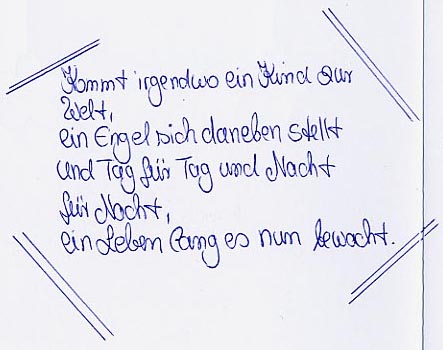 Kommt irgendwo ein Kind zur
Welt,
ein Engel sich daneben stellt
und Tag für Tag und Nacht
für Nacht,
ein Leben lang es nun bewacht.